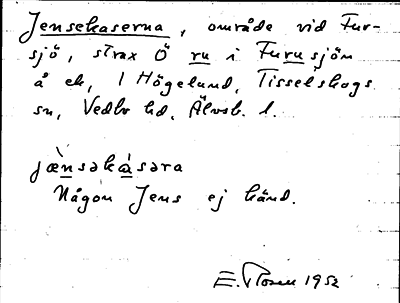 Jensekaserna, område vid Fur-
sjö, strax Ö ru i Furusjön
å ek, 1 Högelund, Tisselskogs
sn, Vedbo hd, Älvsb. l.
jæ̀nsəkȧsəra
Någon Jens ej känd.
E. Rosen 1952